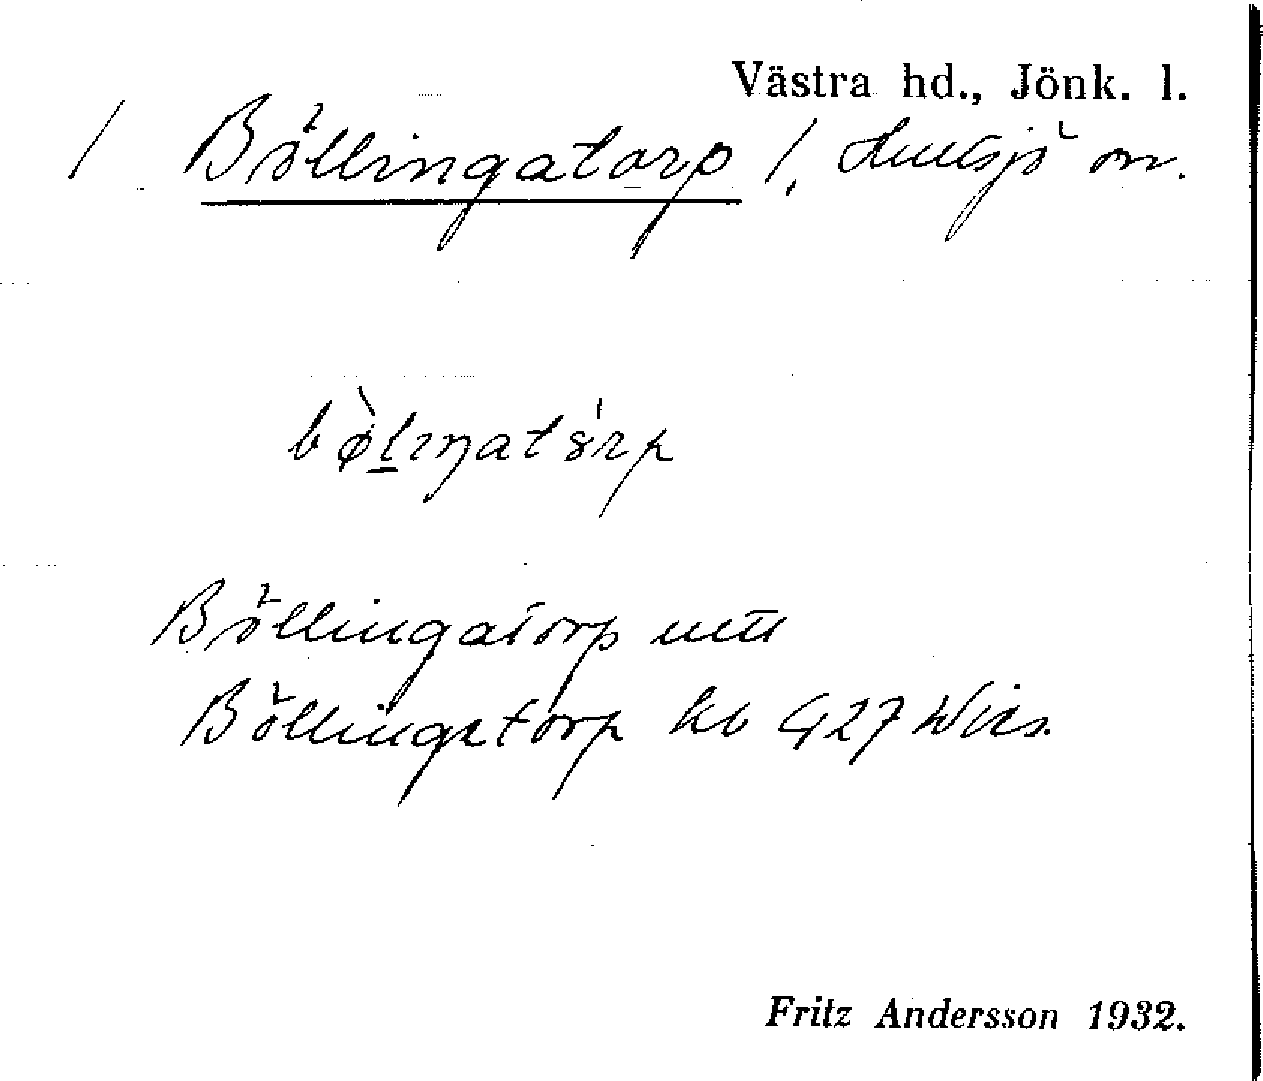 Västra hd., Jönk. l.
/ Böllingatorp /, Hultsjö sn.
bø̀lıŋatórp
Böllingatorp uttl
Böllingatorp kb G27 Wies.
Fritz Andersson 1932.